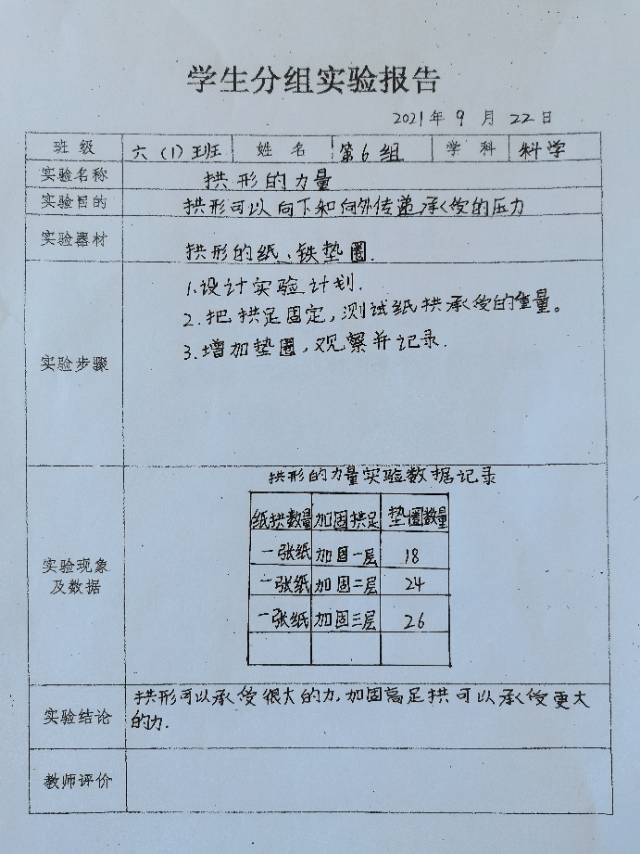 学生分组实验报告
2021年 9 月 22 日
班级 六(1)班 姓名 第6组 学科 科学
实验名称 拱形的力量
实验目的 拱形可以向下和向外传递承受的压力
实验器材 拱形的纸、铁垫圈.
实验步骤
1.设计实验计划.
2.把拱足固定,测试纸拱承受的重量。
3.增加垫圈,观察并记录.
实验现象及数据
拱形的力量实验数据记录
纸拱数量 加固拱足 垫圈数量
一张纸 加固一层 18
一张纸 加固二层 24
一张纸 加固三层 26
实验结论
拱形可以承受很大的力,加固高足拱可以承受更大
的力.
教师评价